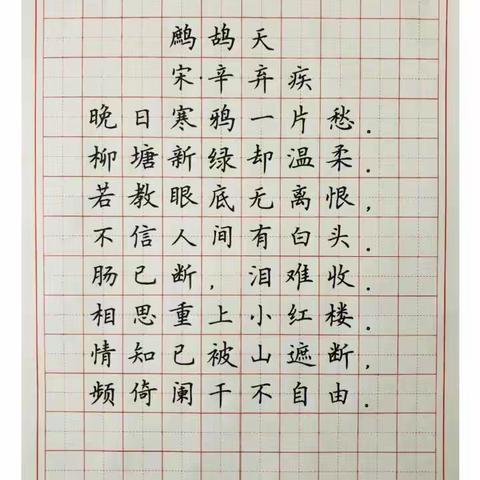 鹧鸪天
宋·辛弃疾
晚日寒鸦一片愁.
柳塘新绿却温柔.
若教眼底无离恨,
不信人间有白头.
肠已断,泪难收.
相思重上小红楼.
情知已被山遮断,
频倚阑干不自由.